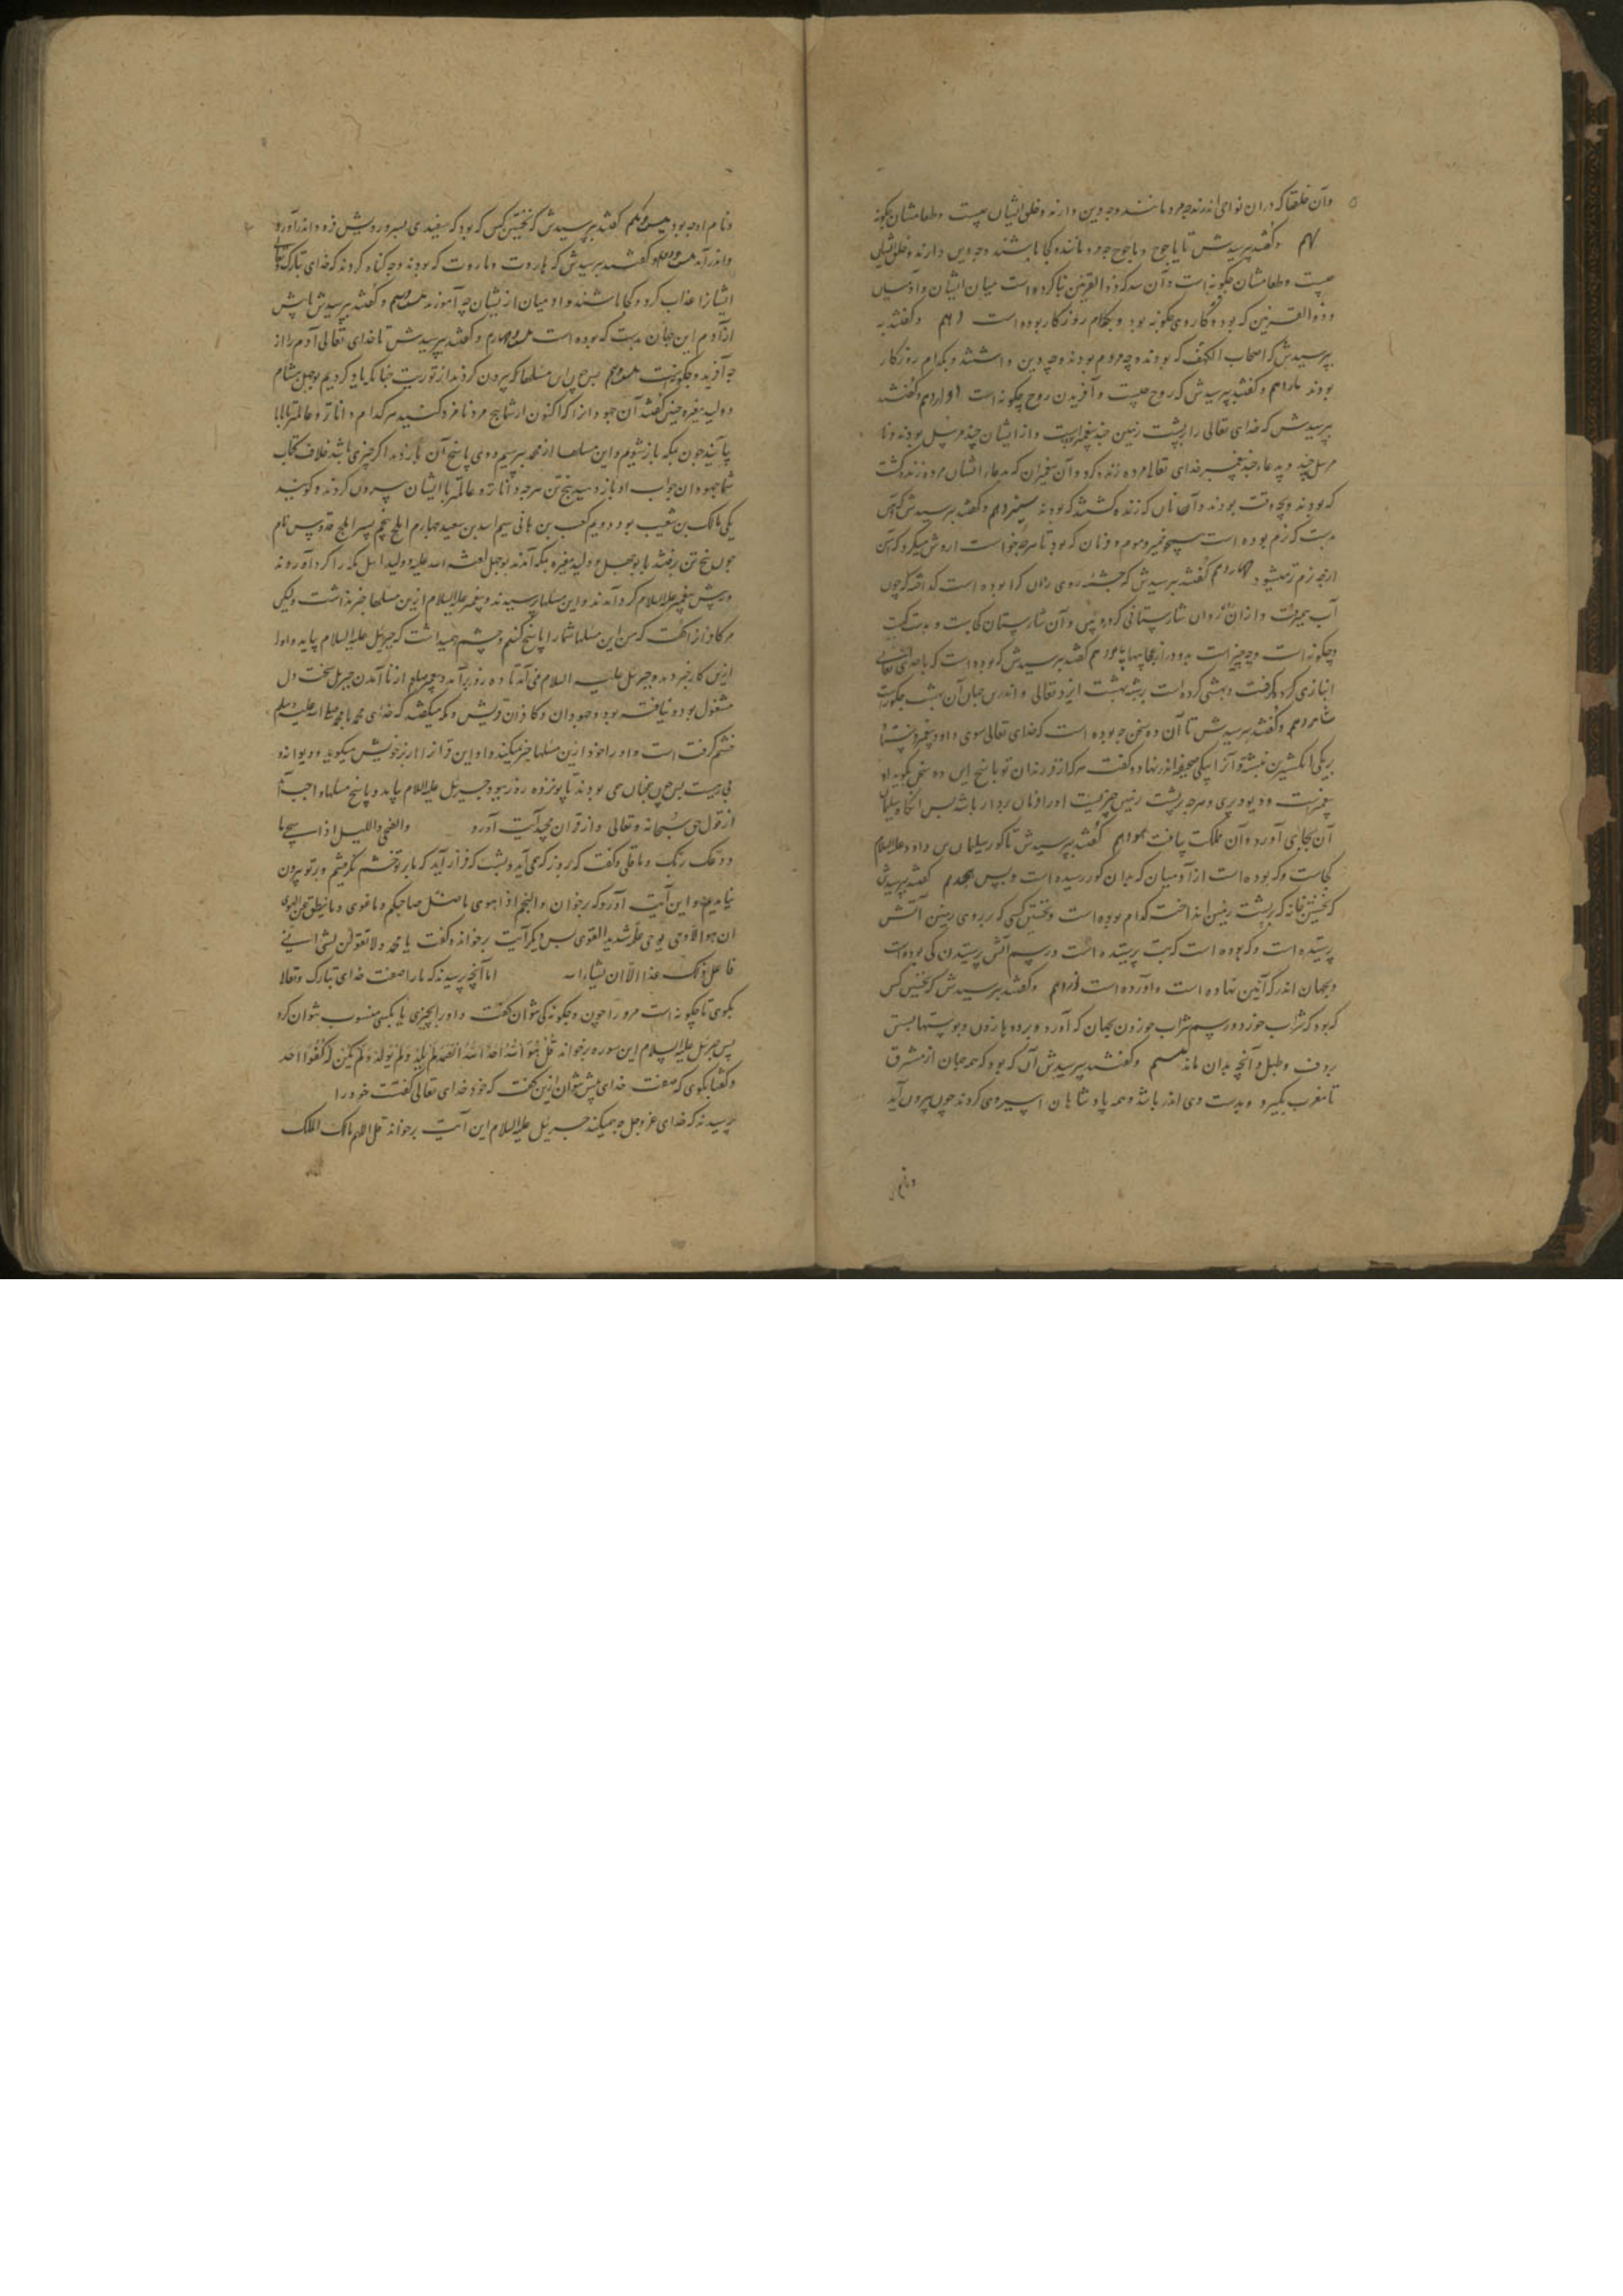 وآن خلقها که در ان نواحی اندر چه مردمانند و چه دین دارند و خلق ایشان چیست وطعامشان چگونه
نهم وگفتند بپرسیدش تا یاجوج وماجوج چه مردمانند و کجا باشند و چه دین دارند و خلق ایشان
چیست وطعامشان چگونه است وآن سد که ذوالقرنین بنا کرده است میان ایشان وآدمیان
وذوالقرنین که بود وکار وی چگونه بود وبکدام روزگار بوده است دهم وگفتند
بپرسیدش که اصحاب الکهف که بودند وچه مردم بودند وچه دین داشتند وبکدام روزگار
بودند یازدهم وگفتند بپرسیدش که روح چیست وآفریدن روح چگونه است دوازدهم وگفتند
بپرسیدش که خدای تعالی را بر پشت زمین چند پیغمبر است واز ایشان چند مرسل بودند ونا
مرسل چند وبدعاء چند پیغمبر خدای تعالی مرده زنده کرد وآن پیغمبران که بدعاء ایشان مرده زنده گشت
که بودند وبچه وقت بودند وآن کسان که زنده گشتند که بودند سیزدهم وگفتند بپرسیدش که آهن
بدست که نرم بوده است همچو خمیر وموم وفرمان که بود تا هرچه خواست ازوش میکرد که آهن
نرم نمیشود چهاردهم گفتند بپرسیدش که چشمه روی روان کرا بوده است
آب میرفت وازان روان شارستانی کرد وآن شارستان کجاست وبدست کیست
وچگونه است وچه چیز است بدو در از عجایبها پانزدهم گفتند بپرسیدش که که بوده است که با خدای تعالی
انبازی کرد وبهشتی کرده است بر شبه بهشت ایزد تعالی واندرین جهان آن بهشت چگونه است
شانزدهم وگفتند بپرسیدش تا آن ده سخن چه بوده است که خدای تعالی سوی داود پیغمبر فرستاد
بریکی انگشترین نبشته وآنرا بیکی صحیفه اندر نهاد وگفت هرکه از فرزندان تو پاسخ این ده سخن بگوید او
پیغمبر است ودیو وپری وهرچه بر پشت زمین چیزیست اورا فرمان بردار باشد پس آنگاه سلیمان
آن بجای آورد وآن مملکت بیافت هفدهم گفتند بپرسیدش تا گور سلیمان بن داود علیه السلام
کجاست وکه بوده است از آدمیان که بدان گور رسیده است وبس هجدهم گفتند بپرسیدش
که نخستین خانه که بر پشت زمین انداخت کدام بوده است ونخستین کسی که بر روی زمین آتش
پرستیده است وکه بوده است که بت پرستیده است ورسم آتش پرستیدن کی بوده است
وبجهان اندر که آئین نهاده است وآورده است نوزدهم وگفتند بپرسیدش که نخستین کس
که بود که شراب خورد ورسم شراب خوردن بجهان که آورد
دف وطبل وآنچه بدان ماند بیستم وگفتند بپرسیدش آن که بود که همه جهان از مشرق
تا مغرب بگیرد وبدست وی اندر باشد وهمه پادشاهان اسپری کردند چون بیرون آید
ونام او چه بود بیست ویکم گفتند بپرسیدش که نخستین کس که بود که سپیدی بسر وروش فرود اندر آورد
واندر آمد بیست ودوم گفتند بپرسیدش که هاروت وماروت که بودند وچه گناه کردند که خدای تبارک وتعالی
ایشانرا عذاب کرد وکجا باشند وآدمیان از ایشان چه آموزند بیست وسیم وگفتند بپرسیدش تا پیش
از آدم این جهان بدست که بوده است بیست وچهارم وگفتند بپرسیدش تا خدای تعالی آدم را از
چه آفرید وچگونه است بیست وپنجم پس چون این مسئلها که بیرون کردند از توریت چنانکه یاد کردیم بوجهل هشام
وولید مغیره چنین گفتند آن جهودانرا که اکنون از شما پنج مرد نامزد کنید هرکدام داناتر وعالمتر تا با ما
بیایند چون بمکه باز شویم واین مسئلها از محمد بپرسیم ووی پاسخ آن باز دهد اگر چیزی باشد خلاف کتاب
شما جهودان جواب او باز دهید پنج تن هرچه داناتر وعالمتر با ایشان بیرون کردند وگویند
یکی مالک بن شعیب بود دویم کعب بن هانی سیم اسد بن سعید چهارم ابلج پنجم پسر ابلج قدوس نام
چون پنج تن برفتند با بوجهل وولید مغیره بمکه آمدند بوجهل لعنة الله علیه وولید اهل مکه را گرد آوردند
وپیش پیغمبر علیه السلام گرد آمدند واین مسئلها پرسیدند وپیغمبر علیه السلام ازین مسئلها خبر نداشت ولیکن
مر کافرانرا گفت که من این مسئلها شما را پاسخ کنم وچشم همیداشت که جبرئیل علیه السلام بیاید واورا
ازین کار خبر دهد وجبرئیل علیه السلام می نیامد تا ده روز برآمد وپیغمبر علیه السلام از نا آمدن جبرئیل سخت دل
مشغول بود وجهودان وکافران قریش ومکه میگفتند که خدای محمد با محمد صلی الله علیه وسلم
خشم گرفت است واورا خود ازین مسئلها خبر میکند واو این قرآنرا از بر خویش میگوید ودیوانه
پس چون چنان می بودند تا پانزده روز ببود جبرئیل علیه السلام بیامد وپاسخ مسئلها
از قول حق سبحانه وتعالی واز قرآن مجید آیت آورد والضحی واللیل اذا سجی ما
ودعک ربک وما قلی وگفت که بروز که می آید وبشب که فراز آید که ما بر تو خشم نگرفتیم وبر تو بیرون
نیامدیم واین آیت آورد که برخوان والنجم اذا هوی ما ضل صاحبکم وما غوی وما ینطق عن الهوی
ان هو الا وحی یوحی علمه شدید القوی پس دیگر آیت برخواند وگفت یا محمد ولا تقولن لشئ انی
فاعل ذلک غدا الا ان یشاء الله اما آنچه پرسیدند که ما را صفت خدای تبارک وتعالا
بگوی تا چگونه است مر ورا چون وچگونه کی توان گفت واورا بچیزی یا بکسی منسوب بتوان کرد
پس جبرئیل علیه السلام این سوره برخواند قُلْ هُوَ اللهُ اَحَدٌ اَللهُ الصَّمَدُ لَمْ یَلِدْ وَلَمْ یُولَدْ وَلَمْ یَکُنْ لَهُ کُفُوًا اَحَد
وگفتا بگوی که صفت خدای بیش نتوان ازین گفت که خود خدای تعالی گفتست خود را
پرسیدند که خدای عز وجل چه میکند جبرئیل علیه السلام این آیت برخواند قل اللهم مالک الملک